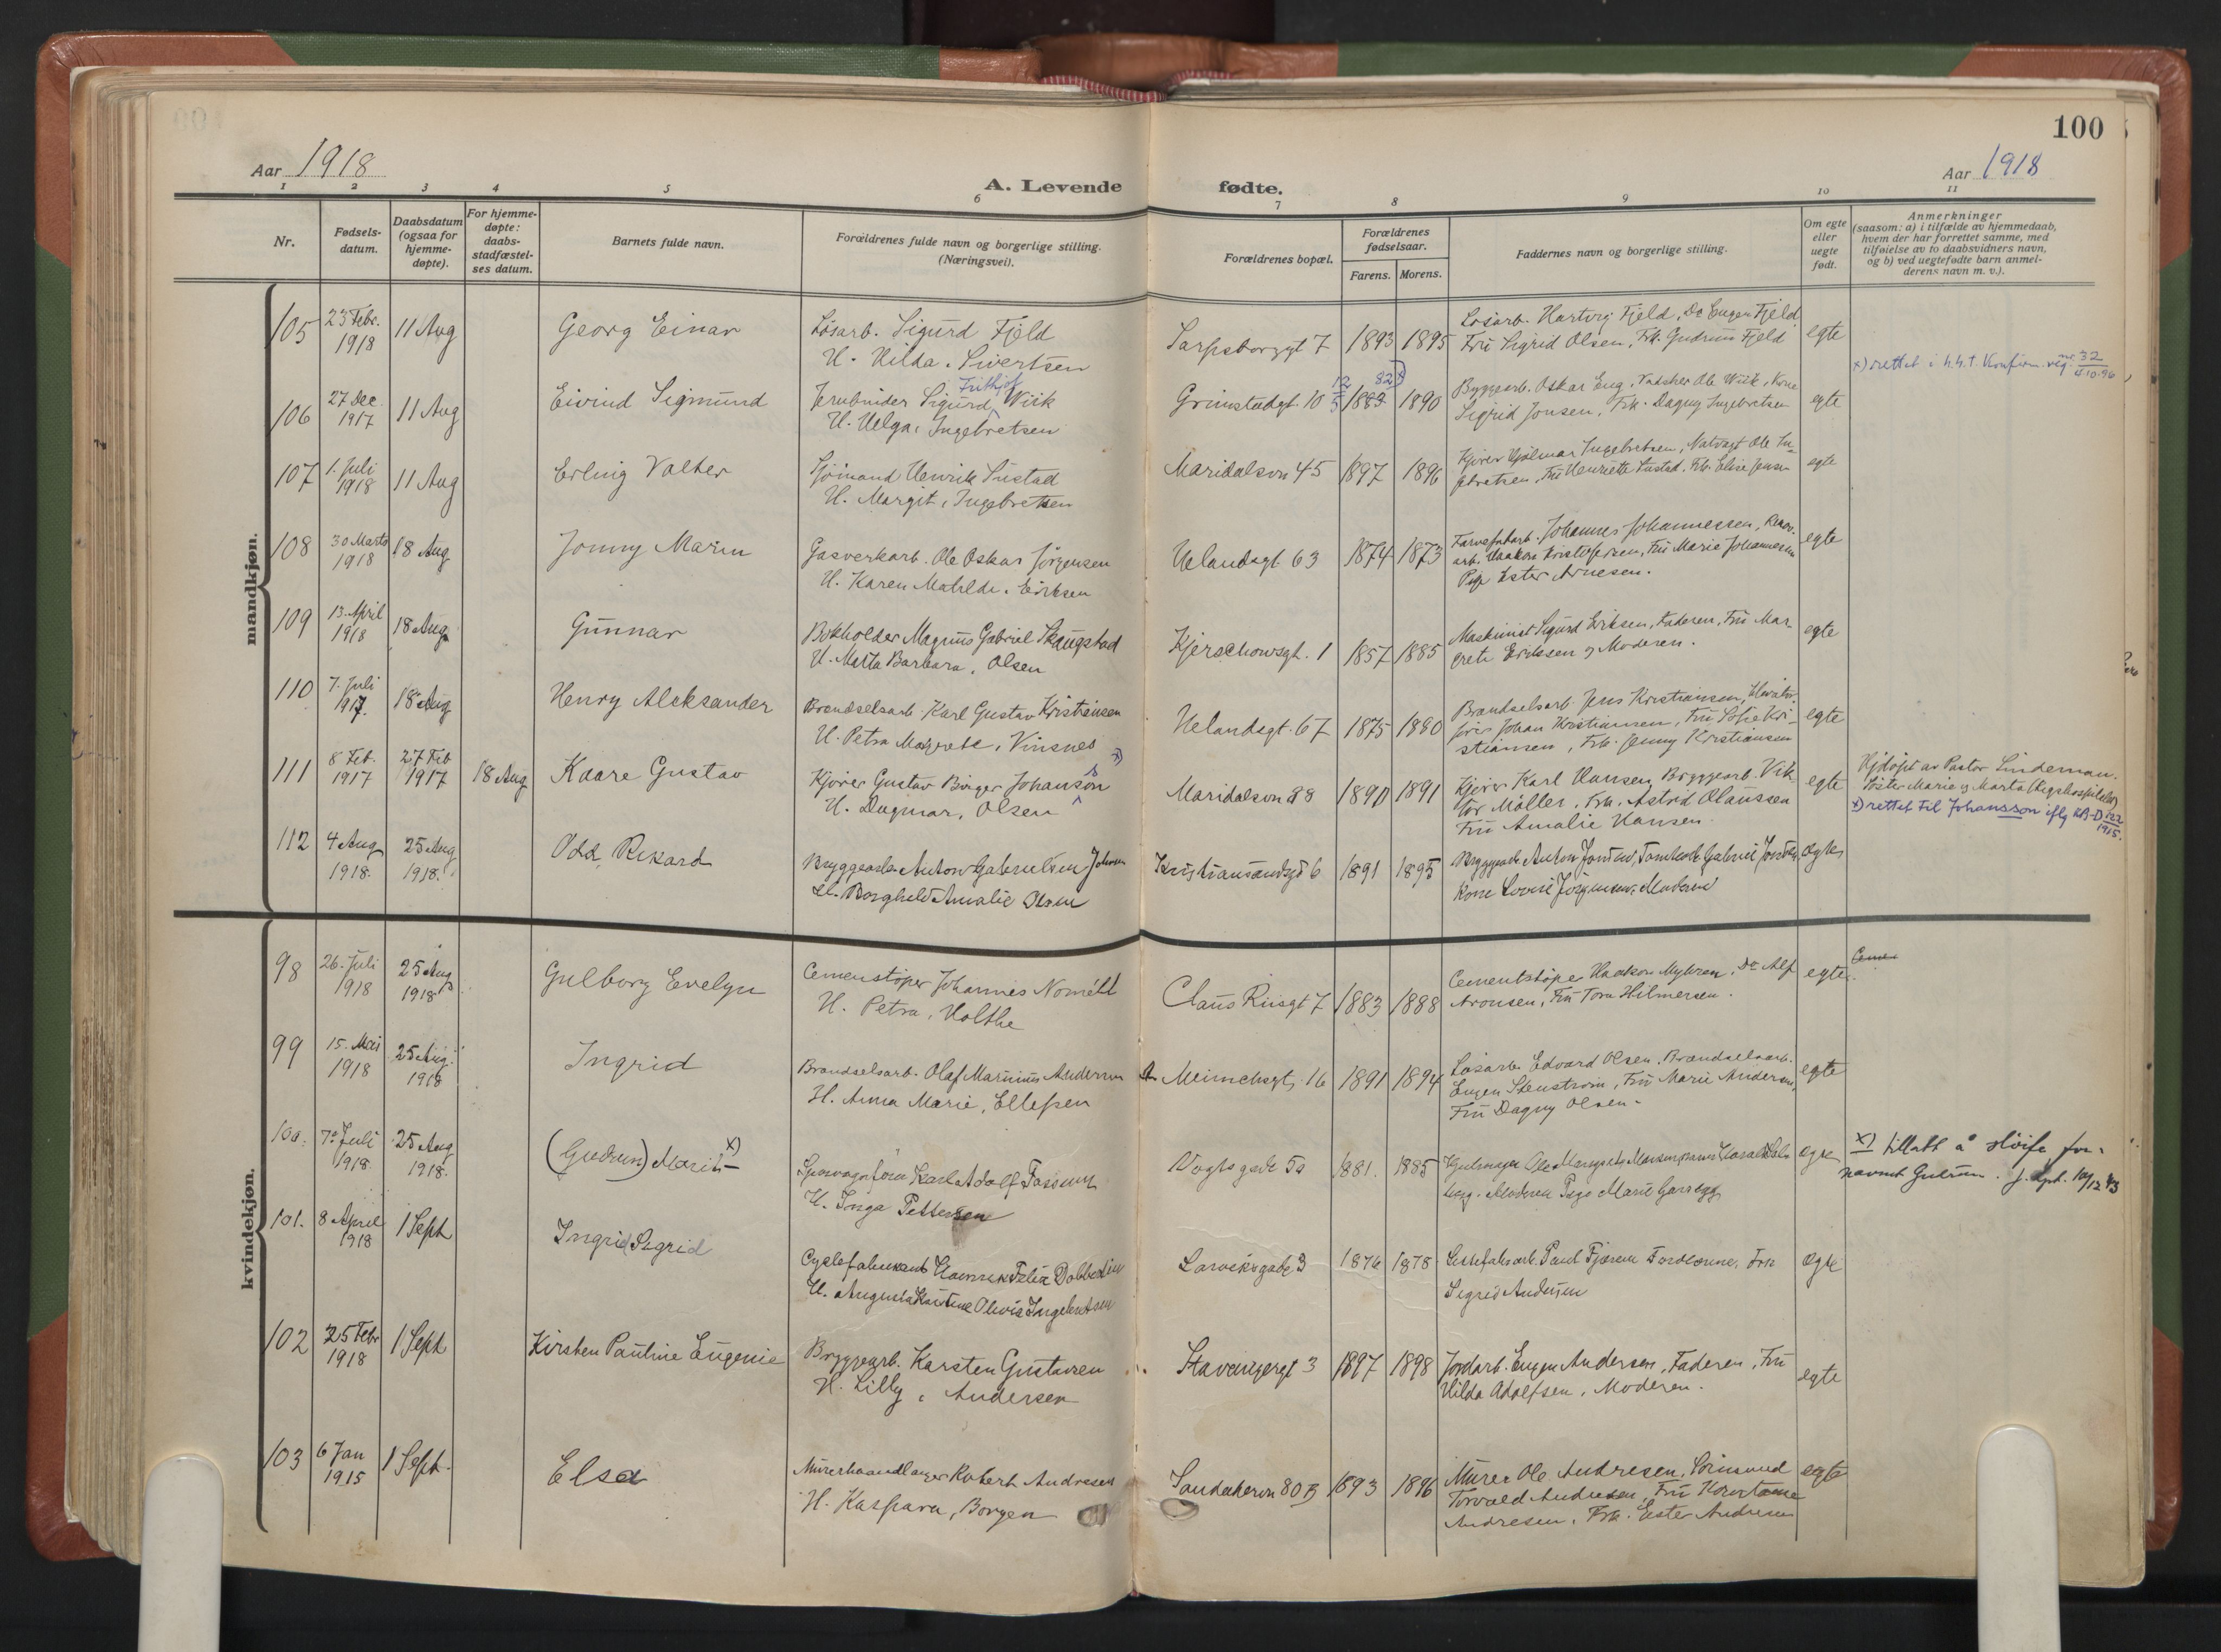 100
Aar 1918
A. Levende fødte.
Aar 1918
1 2 3 4 5 6 7 8 9 10 11
Nr.
Fødsels-
datum.
Daabsdatum
(ogsaa for
hjemme-
døpte).
For hjemme-
døpte:
daabs-
stadfæstel-
ses datum.
Barnets fulde navn.
Forældrenes fulde navn og borgerlige stilling.
(Næringsvei).
Forældrenes bopæl.
Forældrenes
fødselsaar.
Farens. Morens.
Faddernes navn og borgerlige stilling.
Om egte
eller
uegte
født.
Anmerkninger
(saasom: a) i tilfælde av hjemmedaab,
hvem der har forrettet samme, med
tilføielse av to daabsvidners navn,
og b) ved uegtefødte barn anmel-
derens navn m. v.).
mandkjøn.
105 23 Febr. 1918 11 Aug Georg Einar
Løsarb. Sigurd Fjeld
H. Hilda, Sivertsen
Sarpsborggt 7 1893 1895
Løsarb. Hartvig Fjeld, Do Eugen Fjeld
Fru Sigrid Olsen, Frk. Gudrun Fjeld
egte
106 27 Dec 1917 11 Aug Eivind Sigmund
Jernbinder Sigurd Frithjof Wiik
H. Helga, Ingebretsen
Grimstadgt. 10 12/5 1883 82 x) 1890
Byggearb. Oskar Eng, Vadsker Ole Wiik, Kone
Sigrid Jonsen, Frk. Dagny Ingebretsen
egte
x) rettet i h.h.t. Konfirm. reg. nr. 32
4.10.96
107 1. Juli 1918 11 Aug Erling Valter
Sjømand Henrik Sustad
H. Margit, Ingebretsen
Maridalsvn 45 1897 1896
Kjører Hjalmar Ingebretsen, Natvagt Ole In-
gebretsen, Fru Henriette Sustad, Frk. Elise Jensen
egte
108 30 Marts 1918 18 Aug Jonny Marin
Gasverkarb. Ole Oskar Jörgensen
H. Karen Matilde, Eriksen
Uelandsgt 63 1874 1873
Farvefabarb. Johannes Johannessen, Renov.
arb. Haakon Kristofersen, Fru Marie Johannessen
Pige Ester Arnesen.
egte
109 13. April 1918 18 Aug Gunnar
Bokholder Magnus Gabriel Skaugstad
H. Marta Barbara, Olsen
Kjerschowsgt. 1 1857 1885
Maskinist Sigurd Eriksen, Faderen, Fru Mar-
grete Eriksen og Moderen.
egte
110 7. Juli 1917. 18 Aug Henry Aleksander
Brændselsarb. Karl Gustav Kristiansen
H. Petra Margrete, Vinsnes
Uelandsgt. 67 1875 1880
Brændselsarb. Jens Kristiansen, Elevator-
fører Johan Kristiansen, Fru Sofie Kri-
stiansen, Frk. Jenny Kristiansen
egte
111 8 Feb. 1917 27 Feb 1917 18 Aug Kaare Gustav
Kjører Gustav Birger Johanson s x)
H. Dagmar, Olsen
Maridalsvn 88 1890 1891
Kjører Karl Hansen, Bryggearb. Vik-
tor Møller, Frk. Astrid Olaussen
Fru Amalie Hansen.
egte
Hjdøpt av Pastor Lindeman.
Søster Marie og Marta (Rigshospitalet)
x) rettet til Johansson iflg RB-D 122
1915.
112 4 Aug 1918. 25 Aug 1918. Odd, Rikard
Bryggearb. Anton Gabrielsen Johnsen
H. Borghild Amalie Olsen
Kristiansandsgt 6 1891 1895
Bryggearb. Anton Jonsen,
Kone Lovise Jörgensen, Moderen
egte
kvindekjøn.
98 26. Juli 1918 25 Aug 1918 Gulborg Evelyn
Cementstøper Johannes Nomell
H. Petra, Holthe
Claus Riisgt 7 1883 1888
Cementstøper Haakon Myhren, Do Alf
Aronsen, Fru Tora Hilmersen.
egte.
99 15. Mai 1918 25 Aug. 1918 Ingrid
Brændselsarb. Olaf Marinius Andersen
H. Anna Marie, Ellefsen
Meinichsgt 16 1891 1894
Løsarb. Edvard Olsen, Brændselsarb.
Eugen Stenstrøm, Fru Marie Andersen,
Fru Dagny Olsen.
egte
100. 7 Juli 1918. 25 Aug 1918. (Gudrun) Marit x)
Sporvognfører Karl Adolf Fossum
H. Inga Pettersen
Vogtsgade 5a 1881. 1885
Moderen Pige Marie
egte
x) tillatt å sløife for-
navnet Gudrun. J. dpt. 10/12 43
101. 8 April 1918 1 Sept Ingrid Sigrid
Cyclefabrikant Felix
H. Augusta Olivia Ingebretsen
Larviksgade 3 1876 1878
Sigrid Andersen
egte
102 25 Febr 1918 1 Sept Kirsten Pauline Eugenie
Bryggearb. Karsten Gustavsen
H. Lilly, Andersen
Stavangergt 3 1897 1898
Jordarb. Eugen Andersen, Faderen, Fru
Hilda Adolfsen, Moderen.
egte
103 6 Jan 1915 1 Sept. Elsa
Murerhaandlanger Robert Andresen
H. Kaspara, Borgen
Sandakervn 80 B 1893 1896
Murer Ole Andresen, Sømand
Torvald Andresen, Fru
Andresen, Frk. Ester Andresen
egte